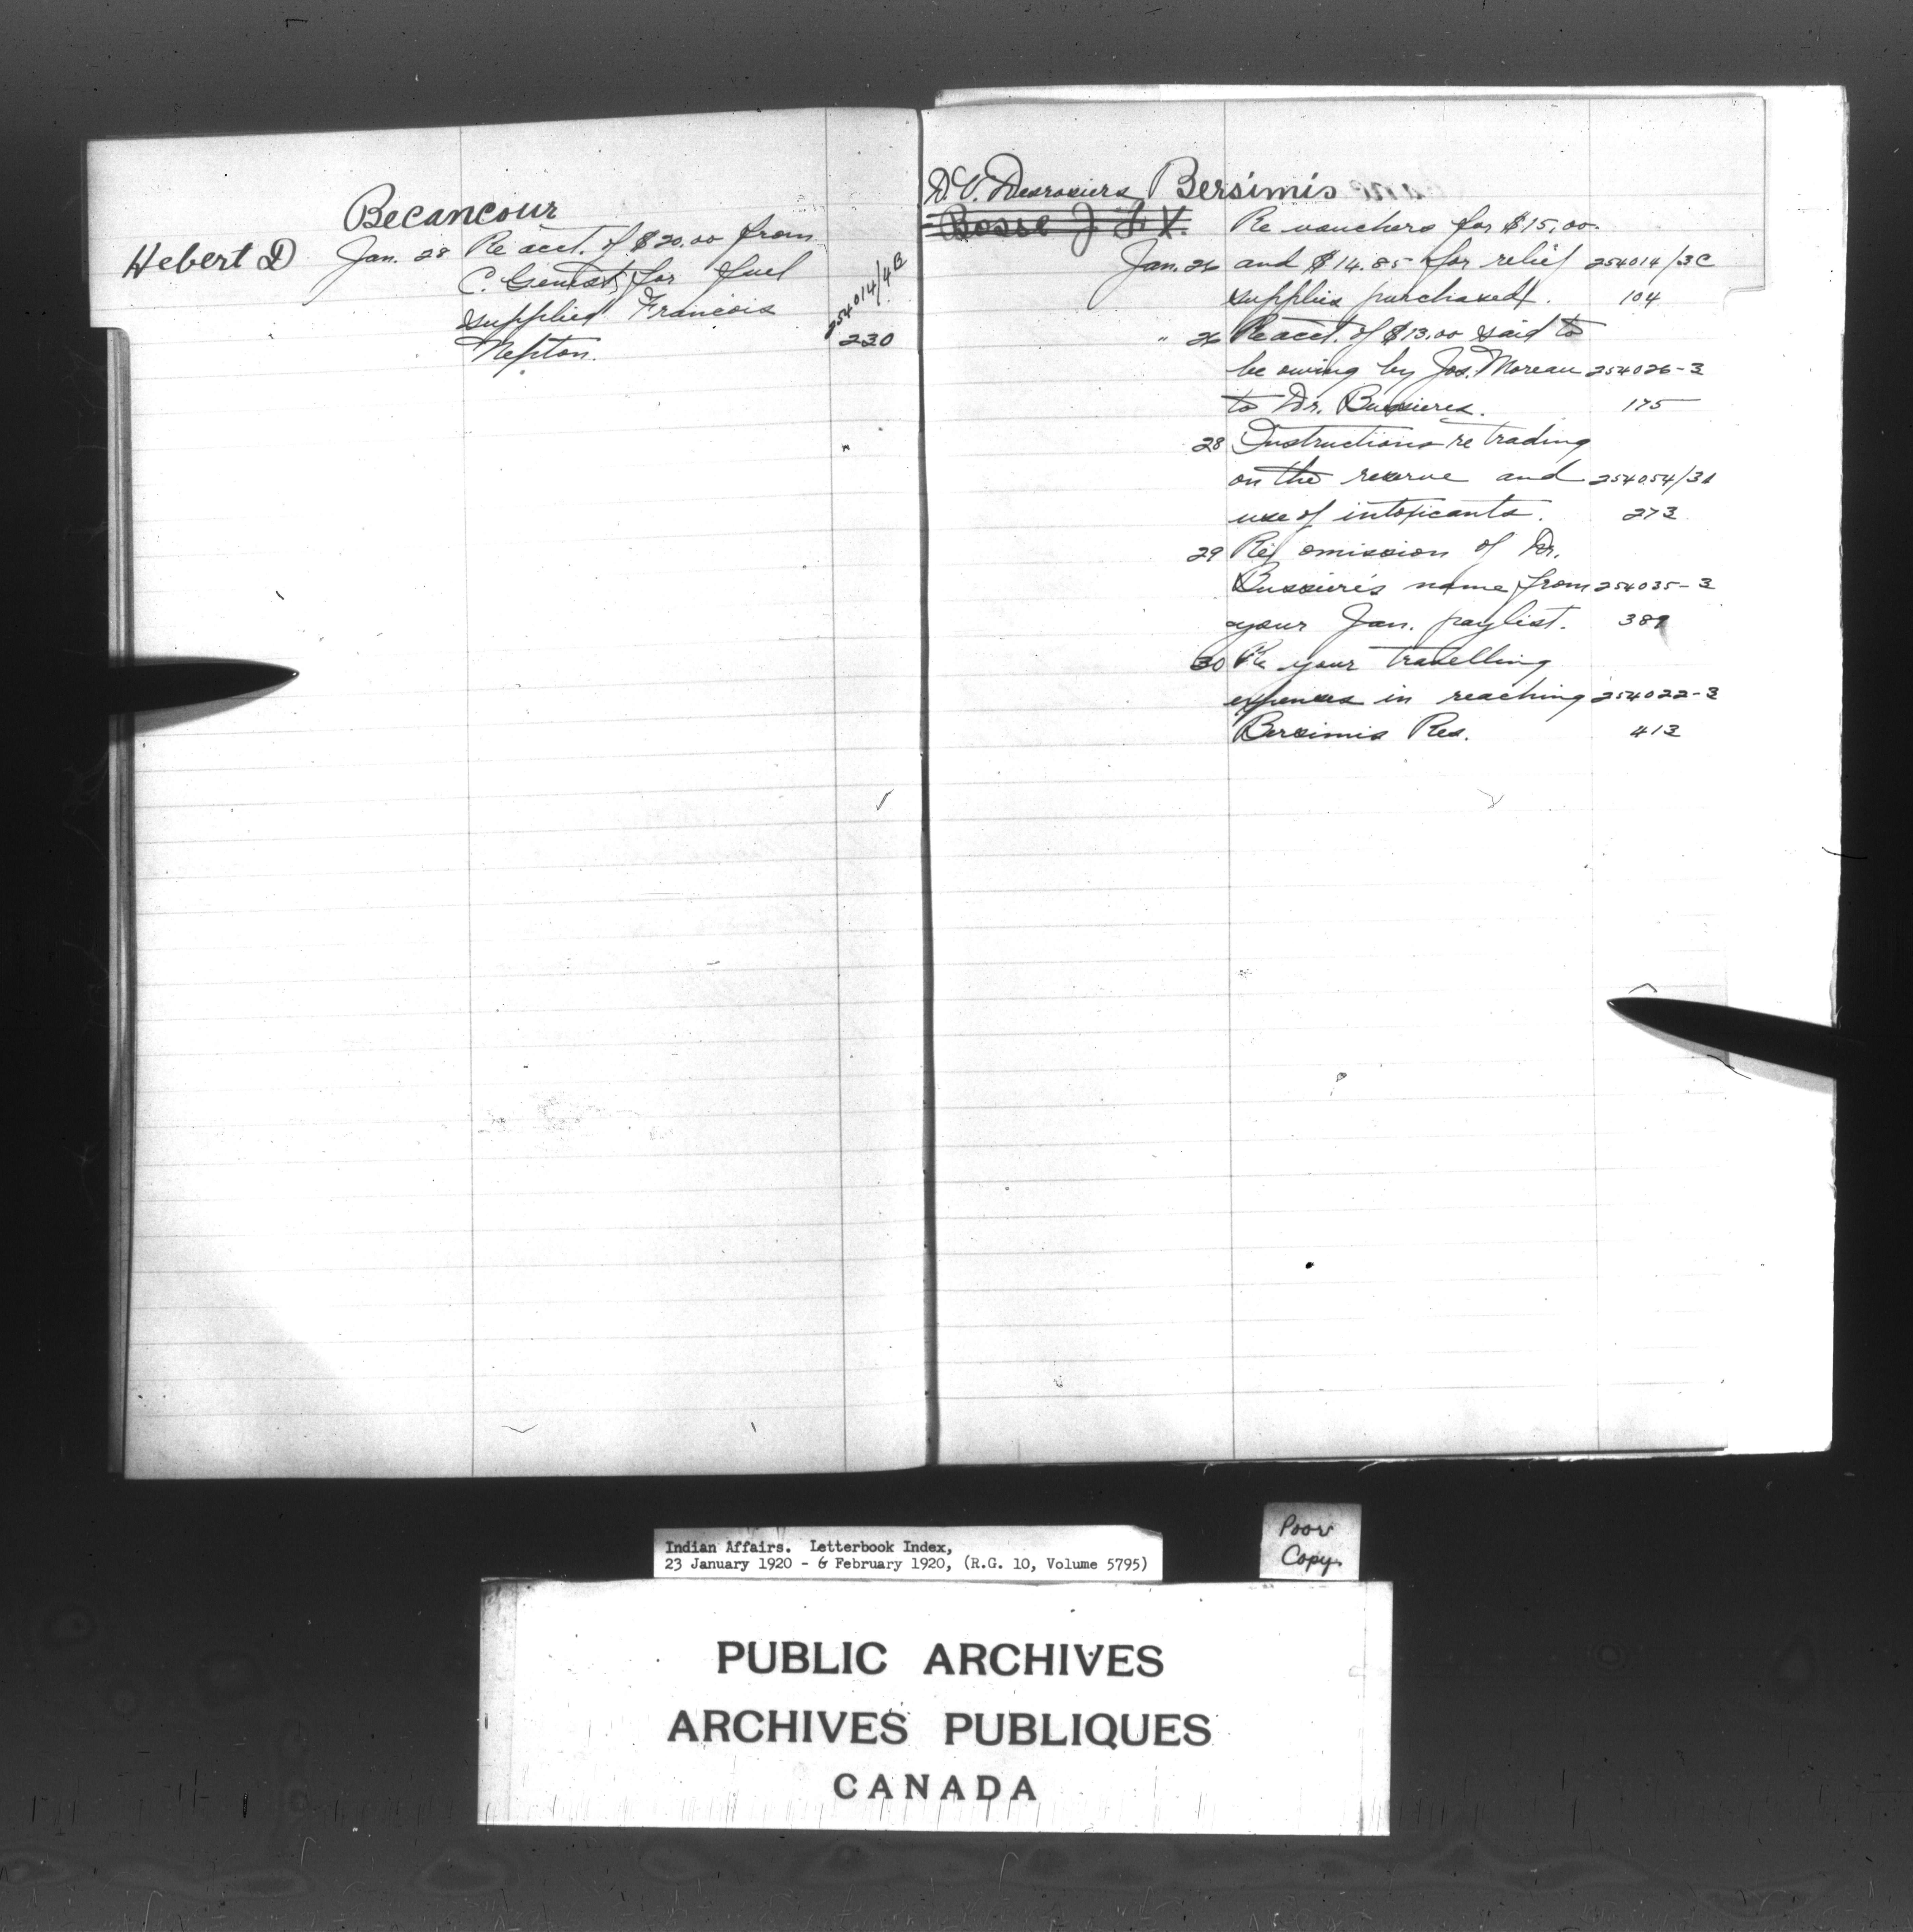 Becancour
Hebert D Jan. 28 Re acct. of $20.00 from
C. Genest, for fuel
supplied Francois 254014/4B
Nepton. 230
D.V. Desrosiers Bersimis
Bosse J F X. Re vouchers for $15.00
Jan. 26 and $14.85 for relief 254014/3C
supplies purchased. 104
" 26 Re acct. of $13.00 said to
be owing by Jos. Moreau 254026-3
to Dr. Bussieres. 175
28 Instructions re trading
on the reserve and 254054/3A
use of intoxicants. 273
29 Re omission of Dr.
Bussiere's name from 254035-3
your Jan. paylist. 389
30 Re your travelling
expenses in reaching 254022-3
Bersimis Res. 413
Indian Affairs. Letterbook Index,
23 January 1920 - 6 February 1920, (R.G. 10, Volume 5795)
Poor
Copy.
PUBLIC ARCHIVES
ARCHIVES PUBLIQUES
CANADA